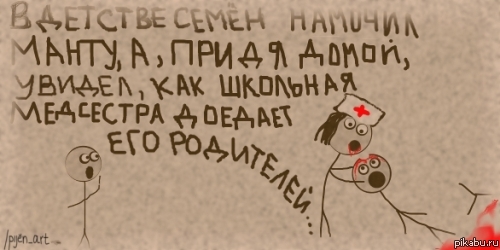 В ДЕТСТВЕ СЕМЁН НАМОЧИЛ
МАНТУ, А, ПРИДЯ ДОМОЙ,
УВИДЕЛ, КАК ШКОЛЬНАЯ
МЕДСЕСТРА ДОЕДАЕТ
ЕГО РОДИТЕЛЕЙ...
/pijen_art
pikabu.ru